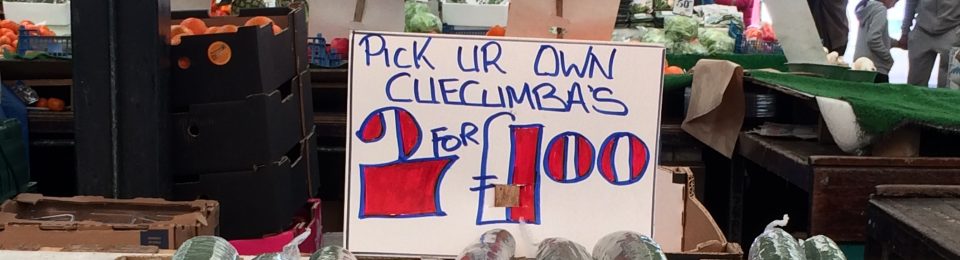 PICK UR OWN
CUECUMBA'S
2 FOR £1.00